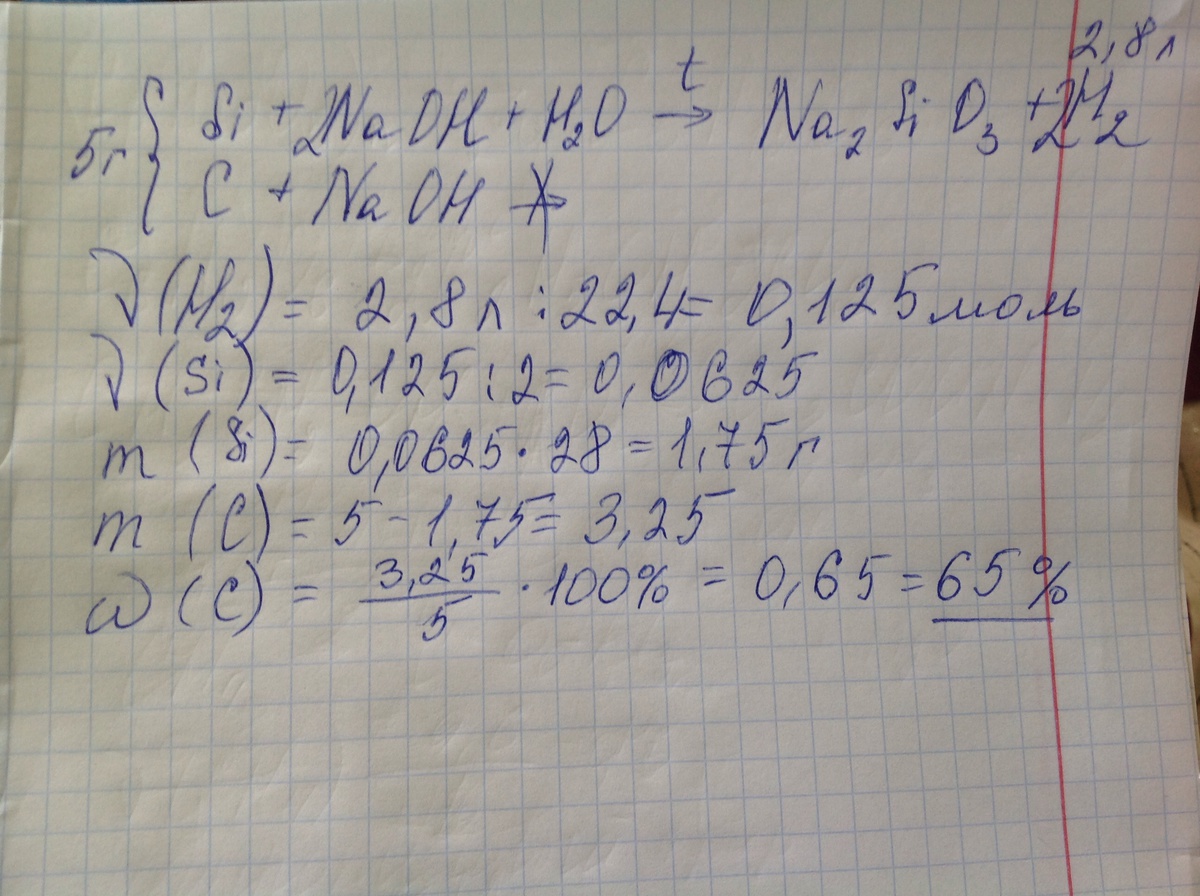 2,8л
5г { Si + 2NaOH + H₂O →ᵗ Na₂SiO₃ + 2H₂
C + NaOH ↛
ν(H₂) = 2,8л : 22,4 = 0,125 моль
ν(Si) = 0,125 : 2 = 0,0625
m (Si) = 0,0625 · 28 = 1,75 г
m (C) = 5 - 1,75 = 3,25
ω (C) = 3,25/5 · 100% = 0,65 = 65%